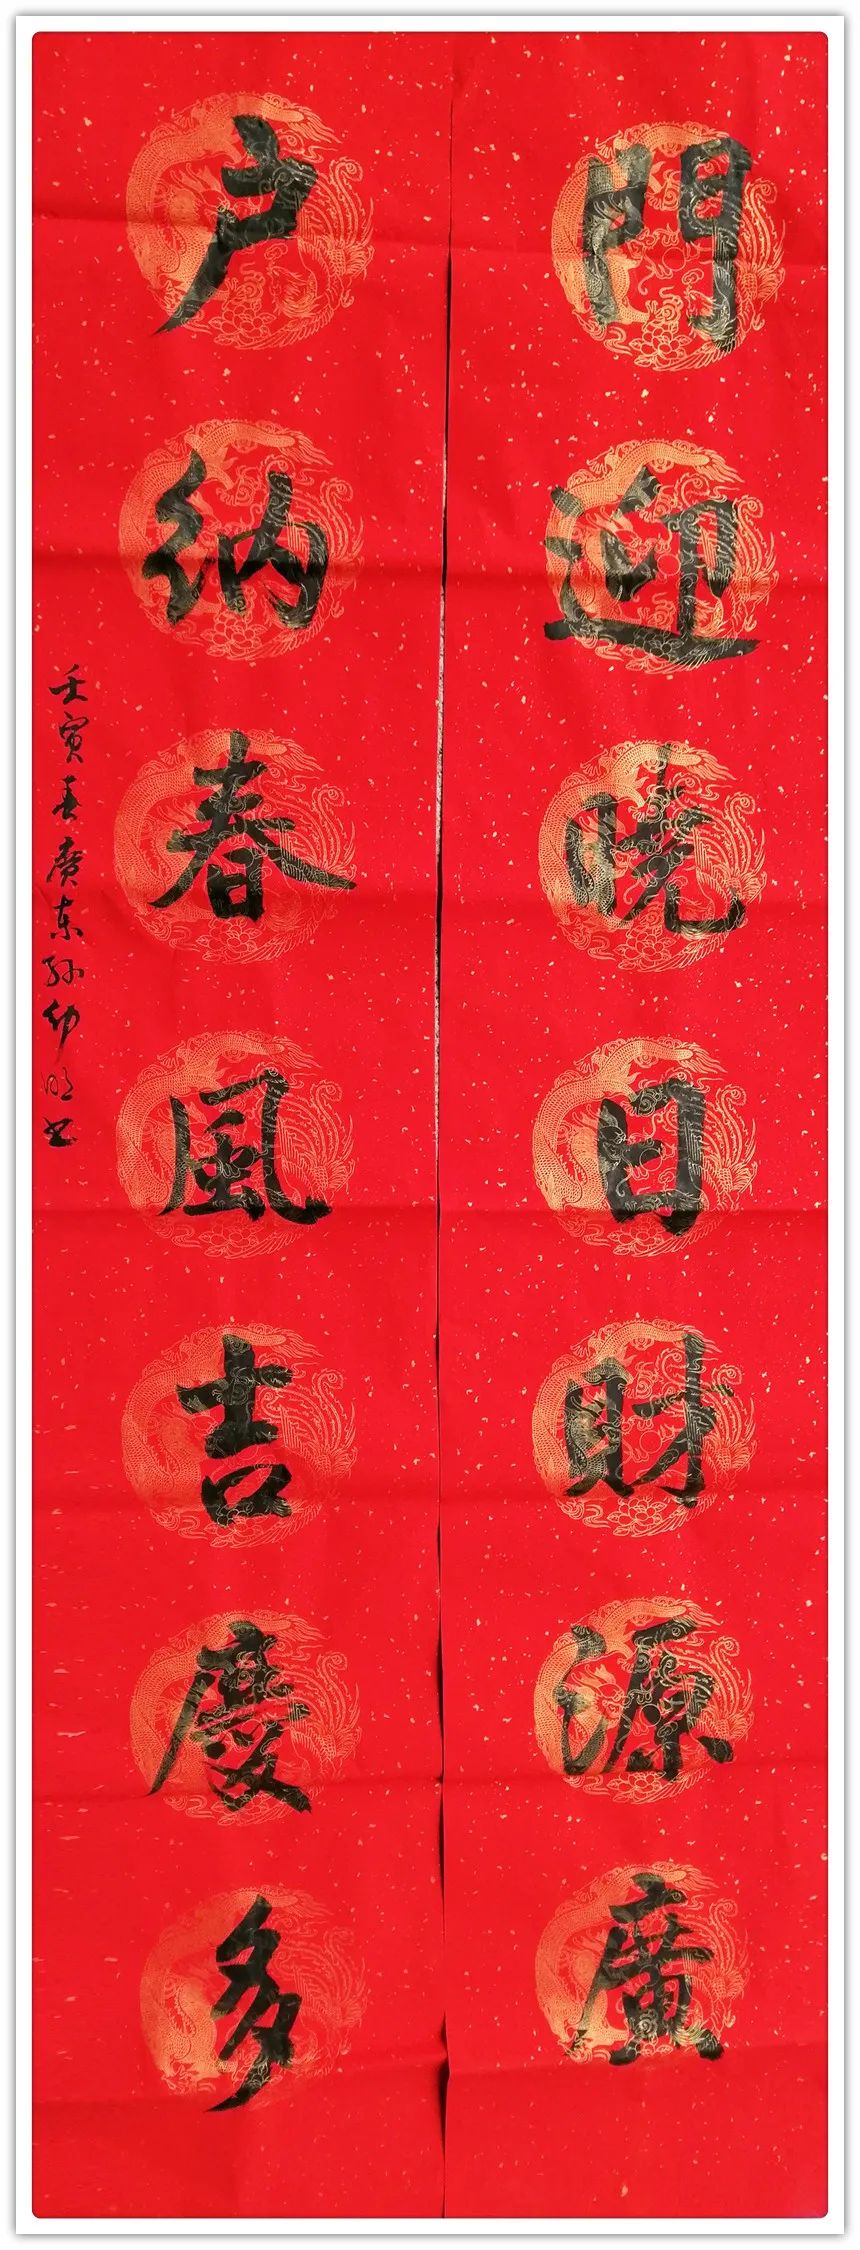 門迎曉日財源廣
户納春風吉慶多
壬寅春廣东孙幼明书